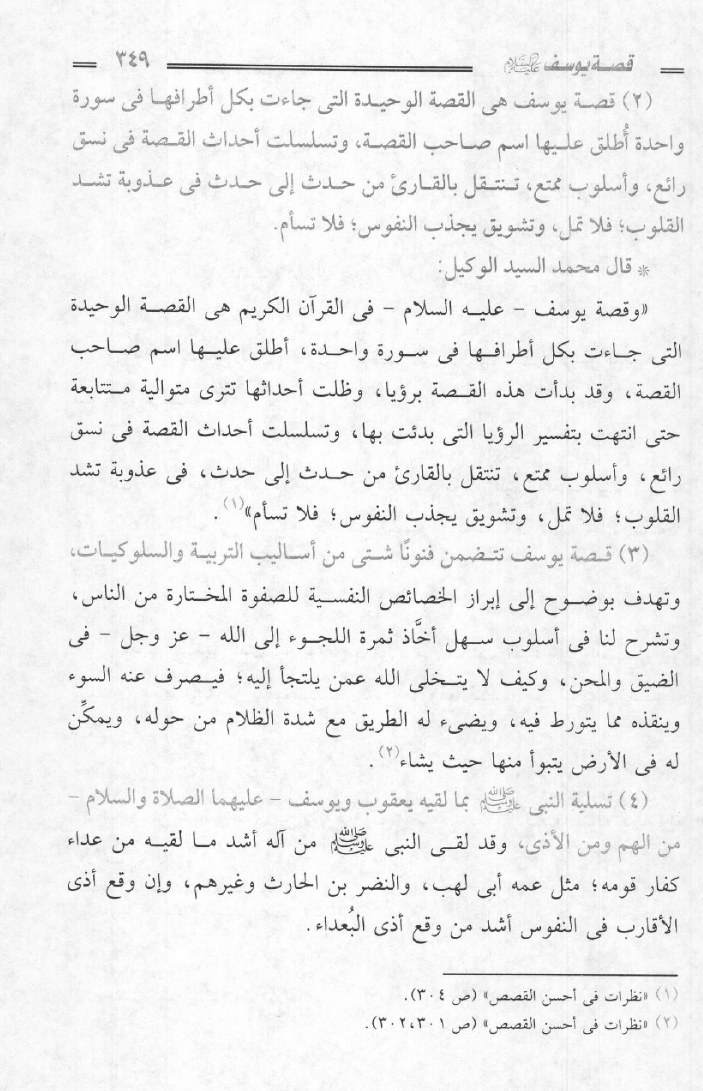 قصة يوسف عليه السلام ٣٤٩
(٢) قصة يوسف هى القصة الوحيدة التى جاءت بكل أطرافها فى سورة
واحدة أُطلق عليها اسم صاحب القصة، وتسلسلت أحداث القصة فى نسق
رائع، وأسلوب ممتع، تنتقل بالقارئ من حدث إلى حدث فى عذوبة تشد
القلوب؛ فلا تمل، وتشويق يجذب النفوس؛ فلا تسأم.
* قال محمد السيد الوكيل:
«وقصة يوسف - عليه السلام - فى القرآن الكريم هى القصة الوحيدة
التى جاءت بكل أطرافها فى سورة واحدة، أطلق عليها اسم صاحب
القصة، وقد بدأت هذه القصة برؤيا، وظلت أحداثها تترى متوالية متتابعة
حتى انتهت بتفسير الرؤيا التى بدئت بها، وتسلسلت أحداث القصة فى نسق
رائع، وأسلوب ممتع، تنتقل بالقارئ من حدث إلى حدث، فى عذوبة تشد
القلوب؛ فلا تمل، وتشويق يجذب النفوس؛ فلا تسأم»(١).
(٣) قصة يوسف تتضمن فنونًا شتى من أساليب التربية والسلوكيات،
وتهدف بوضوح إلى إبراز الخصائص النفسية للصفوة المختارة من الناس،
وتشرح لنا فى أسلوب سهل أخَّاذ ثمرة اللجوء إلى الله - عز وجل - فى
الضيق والمحن، وكيف لا يتخلى الله عمن يلتجأ إليه؛ فيصرف عنه السوء
وينقذه مما يتورط فيه، ويضىء له الطريق مع شدة الظلام من حوله، ويمكِّن
له فى الأرض يتبوأ منها حيث يشاء(٢).
(٤) تسلية النبى ﷺ بما لقيه يعقوب ويوسف - عليهما الصلاة والسلام -
من الهم ومن الأذى، وقد لقى النبى ﷺ من آله أشد ما لقيه من عداء
كفار قومه؛ مثل عمه أبى لهب، والنضر بن الحارث وغيرهم، وإن وقع أذى
الأقارب فى النفوس أشد من وقع أذى البُعداء.
(١) «نظرات فى أحسن القصص» (ص ٣٠٤).
(٢) «نظرات فى أحسن القصص» (ص ٣٠١،٣٠٢).